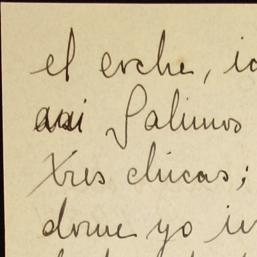 el coche, i
asi Salimos
tres chicas;
dome yo i